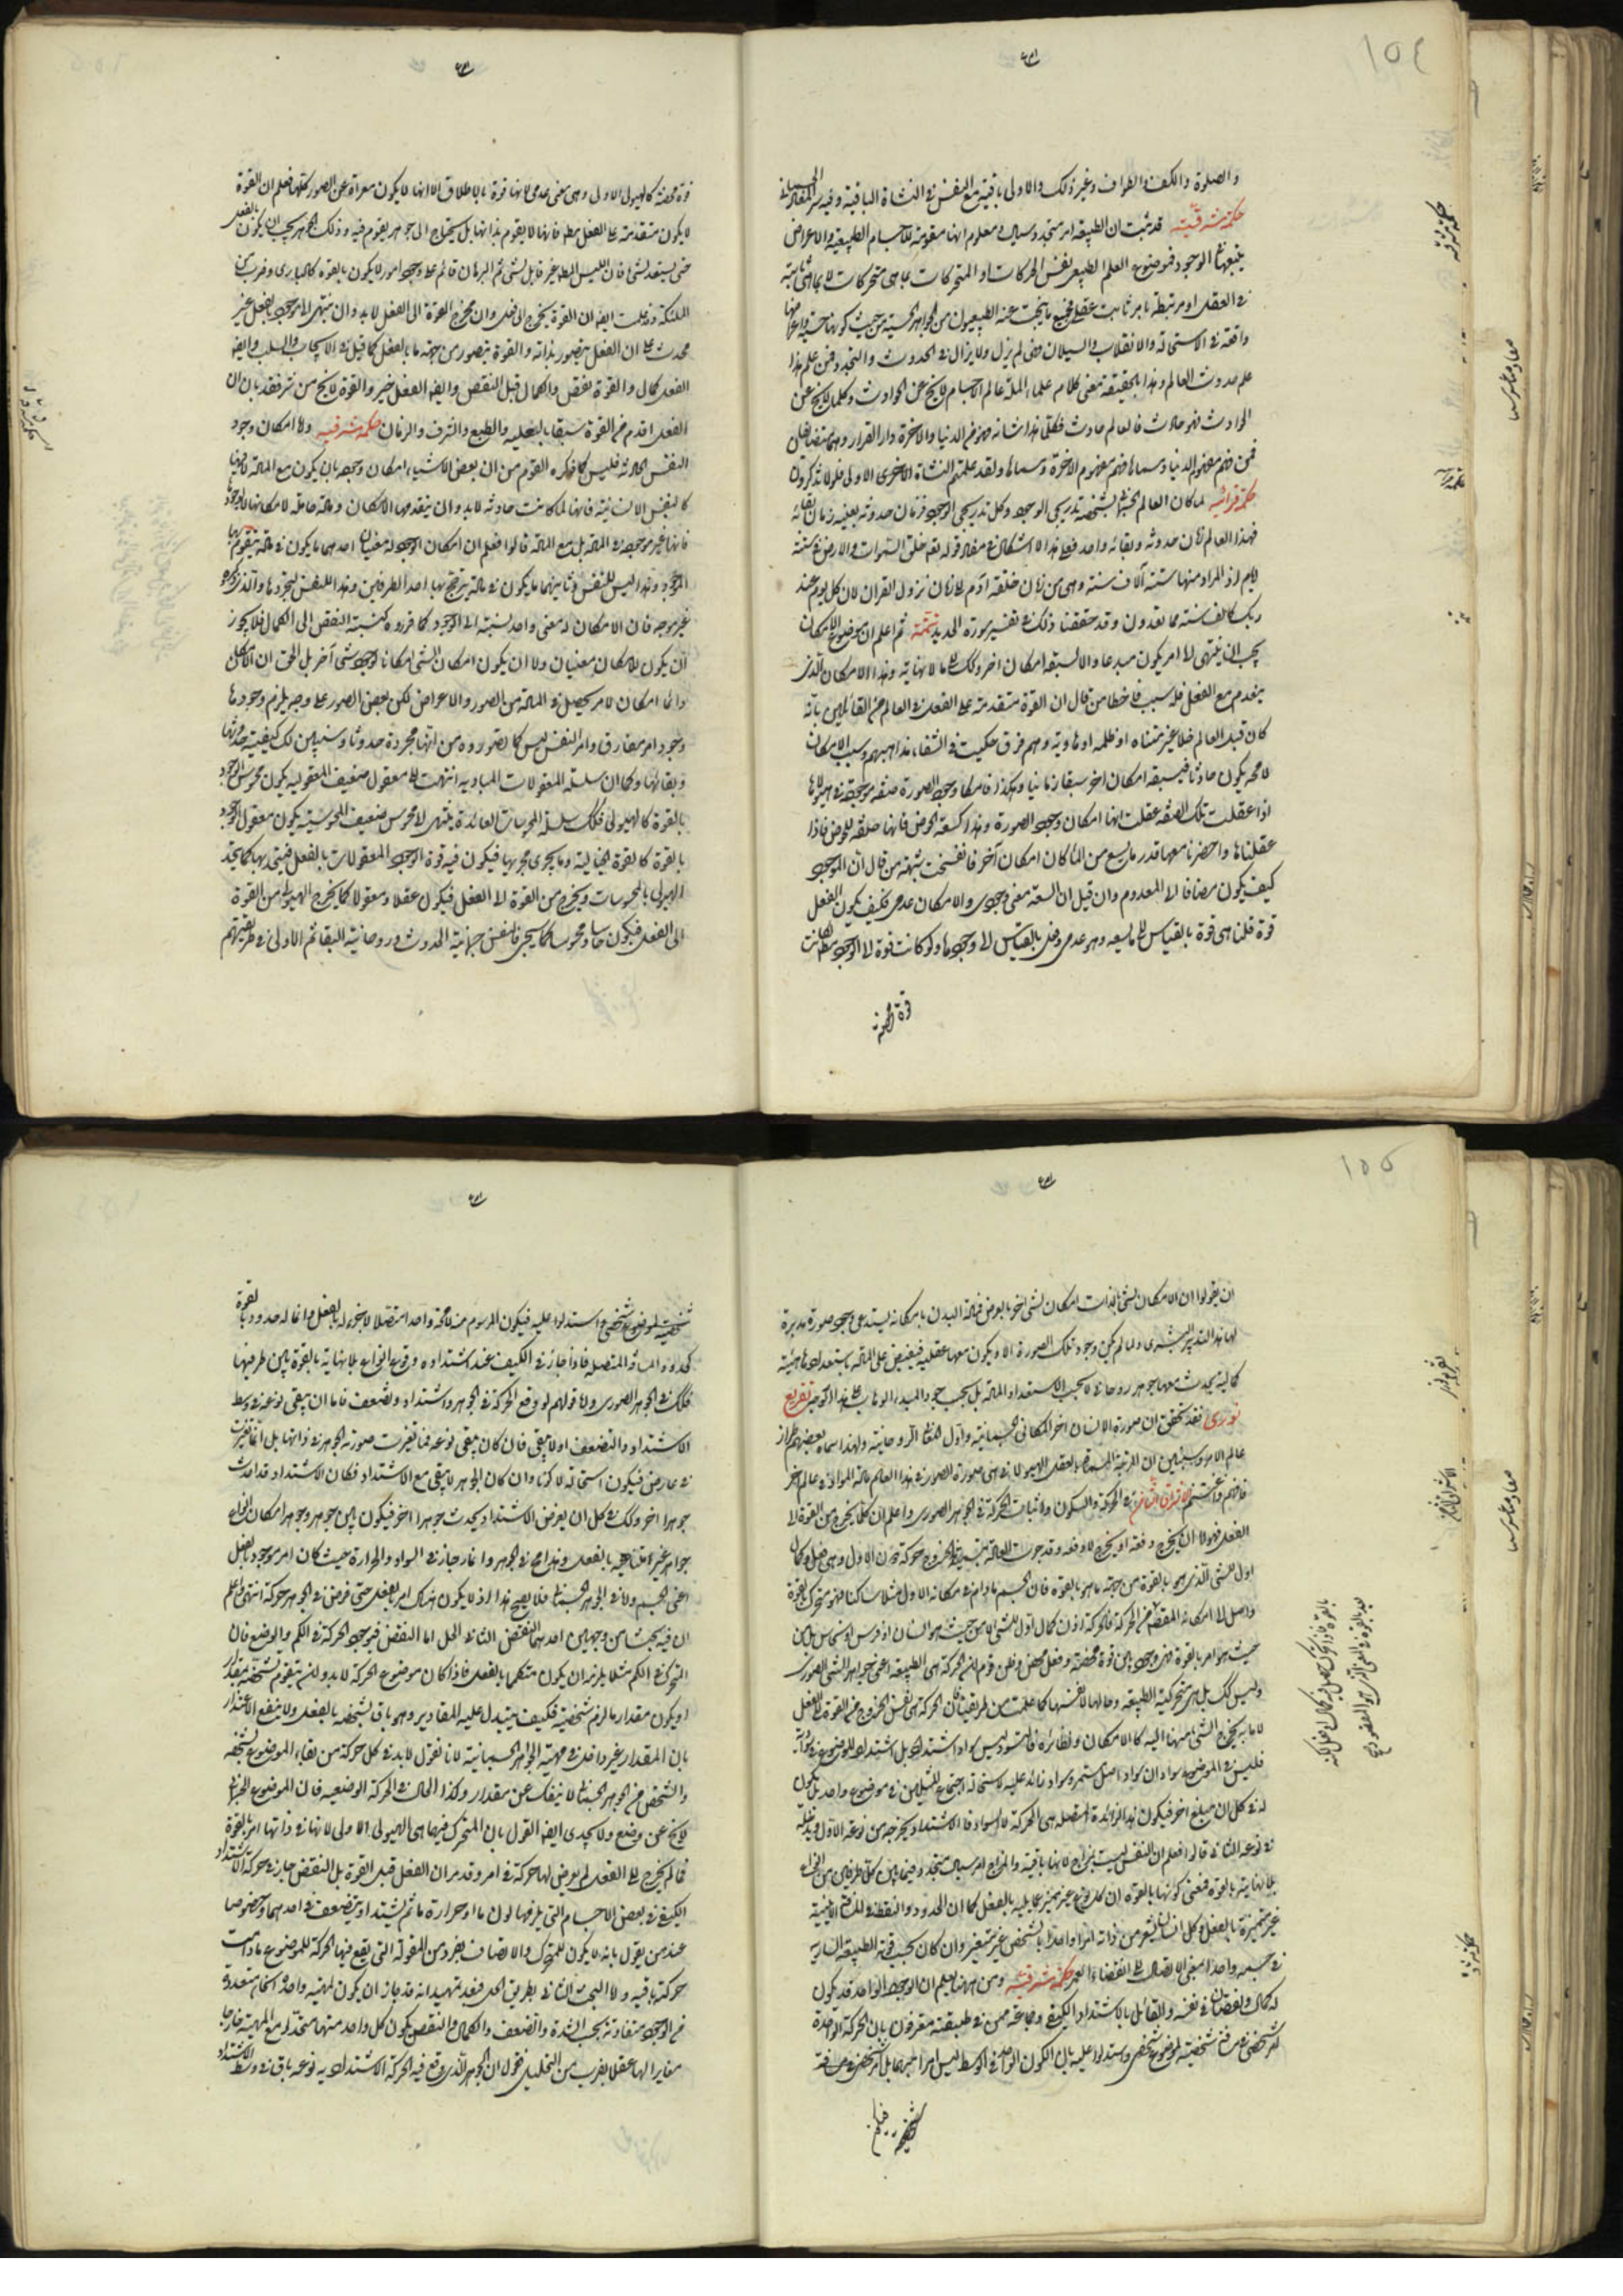 ١٥٤
والصلوة والكف والطراف وغير ذلك والاولى باقية مع النفس فى النشاة الباقية وفيه سر المعاد الجسمانى
حكمة مشرقية قد ثبت ان الطبيعة امر متجدد سيال ومعلوم انها مقومة للاجسام الطبيعية والاعراض
يتبعها فى الوجود فموضوع العلم الطبيعى نفس الحركات او المتحركات بما هى متحركات لا بما هى ثابتة
فى العقل او مرتبطة بامر ثابت عقلى فجميع ما يبحث عنه الطبيعيون من الجواهر الحسية من حيث كونها حسية واعراضها
واقعة فى الاستحالة والانقلاب والسيلان وهى لم يزل ولا يزال فى الحدوث والتجدد فمن علم هذا
علم حدوث العالم وهذا بالحقيقة معنى كلام علماء الملة عالم الاجسام لا يخ عن الحوادث وكلما لا يخ عن
الحوادث فهو حادث فالعالم حادث فكلما هذا شانه فهو من الدنيا والاخرة دار القرار وهما متضايفان
فمن فهم مفهوم الدنيا وسماها فهم مفهوم الاخرة وسماها ولقد علمتم النشاة الاخرى الاولى فلولا تذكرون
حكمة قرانية لما كان العالم الجسمانى بشخصه تدريجى الوجود وكل تدريجى الوجود فزمان حدوثه بعينه زمان بقائه
فهذا العالم زمان حدوثه وبقائه واحد فعلى هذا لا اشكال فى مفاد قوله تعم خلق السموات والارض فى ستة
ايام اذ المراد منها ستة آلاف سنة وهى من زمان خلقة آدم الى زمان نزول القران لان كل يوم عند
ربك كالف سنة مما تعدون وقد حققنا ذلك فى تفسير سورة الحديد تتمة ثم اعلم ان موضوع الامكان
يجب ان ينتهى الى امر يكون مبدعا والا لسبقه امكان اخر وذلك الى ما لا نهاية وهذا الامكان الذى
ينعدم مع الفعل فله سبب فاخطا من قال ان القوة متقدمة على الفعل فى العالم من القائلين بانه
كان قبل العالم خلاء غير متناه او ظلمة او هاوية وهم فرق حكيت فى الشفاء مذاهبهم وسبب الامكان
لا محه يكون حادثا فيسبقه امكان اخر سبقا زمانيا وهكذا فامكان وجود الصورة صفة موجودة فى هيولاها
اذا عقلت تلك الصفة عقلت انها امكان وجود الصورة وهذا كسعة الحوض فانها صفة للحوض فاذا
عقلناها واحضرنا معها قدر ما يسع من الماء كان امكان آخر فانفسخت شبهة من قال ان الموجود
كيف يكون مضافا الى المعدوم وان قيل ان السعة معنى وجودى والامكان عدمى فكيف يكون الفعل
قوة قلنا هى قوة بالقياس الى ما يسعه وهو عدمى وفعل بالقياس الى وجودها ولو كانت قوة لا الوجود مطلقا لكانت
قوة محضة
قوة محضة كالهيولى الاولى وهى معنى عدمى لانها قوة بالاطلاق الا انها لا يكون معراة عن الصور كلها فعلم ان القوة
لا يكون متقدمة على الفعل مط فانها لا يقوم بذاتها بل يحتاج الى جوهر يقوم فيه وذلك الجوهر يجب ان يكون بالفعل
حتى يستعد لشئ فان الليس المط غير قابل لشئ ثم البرهان قائم على وجود امور لا يكون بالقوة كالبارى وضرب من
الملئكة وقد علمت ايضا ان القوة يخرج الى فعل وان مخرج القوة الى الفعل لا بد وان ينتهى الى موجود بالفعل غير
محدث على ان الفعل يتصور بذاته والقوة يتصور من جهة ما بالفعل كما قيل فى الايجاب والسلب وايضا
الفعل كمال والقوة نقص والكمال قبل النقص وايضا الفعل خير والقوة لا يخ من شر فقد بان ان
الفعل اقدم من القوة سبقا بالعلية والطبع والشرف والزمان حكمة مشرقية ولما امكان وجود
النفس الحادثة فليس كما ذكره القوم من ان بعض الاشياء امكان وجوده بان يكون مع المادة لا فيها
كالنفس الانسانية فانها لما كانت حادثة لا بد وان يتقدمها الامكان ومادة حاملة لامكانها لا لوجودها
فانها غير موجودة فى المادة بل مع المادة قالوا فعلم ان امكان الوجود له معنيان احدهما ما يكون فى مادة يتقوم بها
الموجود وهذا ليس للنفس وثانيهما ما يكون فى مادة يترجح بها احد الطرفين وهذا للنفس لتجردها والذى ذكروه
غير موجه فان الامكان له معنى واحد نسبته الى الوجود كما قرروه كنسبة النقص الى الكمال فلا يجوز
ان يكون للامكان معنيان ولا ان يكون امكان الشئ امكانا لوجود شئ آخر بل الحق ان الامكان
دائما امكان لامر يحصل فى المادة من الصور والاعراض لكن بعض الصور على وجه يلزم وجودها
وجود امر مفارق وامر النفس ليس كما تصوروه من انها مجردة حدوثا وسنبين لك كيفية حدوثها
وبقائها وكما ان سلسلة المعقولات المبادية انتهت الى معقول ضعيف المعقولية يكون محسوس الوجود
بالقوة كالهيولى فلك سلسلة المحسوسات العائدة ينتهى الى محسوس ضعيف المحسوسية يكون معقول الوجود
بالقوة كالقوة الخيالية وما يجرى مجريها فيكون فيه قوة الوجود المعقولات بالفعل فيتحد بها كما يتحد
الهيولى بالمحسوسات ويخرج من القوة الى الفعل فيكون عقلا ومعقولا كما يخرج الهيولى من القوة
الى الفعل فيكون حاسا ومحسوسا كما سيجئ فالنفس جسمانية الحدوث وروحانية البقاء ثم الاولى فى طريقتهم
١٥٥
ان يقولوا ان الامكان لشئ بالذات امكان لشئ اخر بالعرض فمادة البدن بامكانه يستدعى وجود صورة مدبرة
لها هذا التدبير البشرى ولما لم يكن وجود تلك الصورة الا ويكون معها عقلية فيفيض على المادة باستعدادها هيئة
كمالية يحدث معها جوهر روحانى لا بحسب الاستعداد المادة بل بحسب جود المبدء الوهاب على هذا الوجه تفريع
نورى فقد تحقق ان صورة الانسان اخر المعانى الجسمانية واول المعانى الروحانية ولهذا سماه بعضهم طراز
عالم الامر وسيبين ان المرتبة المسماة بالعقل الهيولانى هى صورة الصور فى هذا العالم مادة المواد فى عالم اخر
فافهم واغتنم الاشراق الثانى فى الحركة والسكون واثبات الحركة فى الجوهر الصورى واعلم ان كلما يخرج من القوة الى
الفعل فهو اما ان يخرج دفعة او يخرج لا دفعة وقد جرت العادة بتسمية هذا الخروج حركة دون الاول وهى فعل وكمال
اول للشئ الذى هو بالقوة من جهة ما هو بالقوة فان الجسم ما دام فى مكانه الاول مثلا ساكنا فهو متحرك بالقوة
وواصل الى امكانه المقصود من الحركة فالحركة اذن كمال اول للشئ لا من حيث هو انسان او فرس او نحاس بل من
حيث هو امر بالقوة فهى وجود بين قوة محضة وفعل محض وظن قوم ان الحركة هى الطبيعة اعنى جوهر الشئ الصورى
وليس كك بل هى متحركية الطبيعة وحالها لا نفسها كما علمت من طريقتنا فان الحركة هى نفس الخروج من القوة الى الفعل
لا ما به يخرج الشئ منها اليه كالامكان ونظائره فالتسود ليس سوادا اشتد بل اشتداد للموضوع فى سواده
فليس فى الموضوع سوادان سواد اصل مستمر وسواد زائد عليه لاستحالة اجتماع المثلين فى موضوع واحد بل يكون
له فى كل ان مبلغ اخر فيكون هذا الزيادة المتصلة هى الحركة لا السواد فالاشتداد يخرجه من نوعه الاول ويدخله
فى نوعه الثانى قالوا فعلم ان النفس ليست بمزاج لانها باقية والمزاج امر سيال متجدد فيما بين كل طرفين من انواع
بلا نهاية بالقوة فمعنى كونها بالقوة ان كل نوع غير متميز عما يليه بالفعل كما ان الحدود والنقط فى المسافة الاينية
غير متميزة بالفعل وكل انسان يشعر من ذاته امرا واحدا بالشخص غير متغير وان كان بحسب قوة الطبيعة السارية
فى جسمه واحدا بمعنى الاتصال الى انقضاء العمر حكمة مشرقية ومن ههنا يعلم ان الوجود الواحد قد يكون
له كمال ونقصان فى نفسه والقائل بالاشتداد الكيفى وجماعة ممن فى طبقته معترفون بان الحركة الواحدة
امر شخصى فى مسافة شخصية لموضوع شخصى واستدلوا عليه بان الكون الواحد فى الوسط ليس امرا مبهما بل شخصى فى مسافة
شخصية
شخصية لموضوع شخصى استدلوا عليه فيكون المرسوم منه لا محة واحدا متصلا لا جزء له بالفعل وانما له حدود بالقوة
كحدود المسافة المتصلة فاذا جاز فى الكيف عند اشتداده وقوع انواع بلا نهاية بالقوة بين طرفيها
فلك فى الجوهر الصورى واما قولهم لو وقع الحركة فى الجوهر واشتداد وتضعف فاما ان يبقى نوعه فى وسط
الاشتداد والتضعف او لا يبقى فان كان يبقى نوعه فما تغيرت صورته الجوهرية فى ذاتها بل انما تغيرت
فى عارض فيكون استحالة لا كونا وان كان الجوهر لا يبقى مع الاشتداد فكان الاشتداد قد احدث
جوهرا اخر وكك فى كل ان يفرض الاشتداد يحدث جوهرا اخر فيكون بين جوهر وجوهر امكان انواع
جواهر غير متناهية بالفعل وهذا مح فى الجوهر وانما جاز فى السواد والحرارة حيث كان امر موجود بالفعل
اعنى الجسم واما فى الجوهر الجسمانى فلا يصح هذا اذ لا يكون هناك امر بالفعل حتى فرض فى الجوهر حركة انتهى فاعلم
ان فيه بحثا من وجهين احدهما النقض الثانى الحل اما النقض فبوجود الحركة فى الكم والوضع فان
التحرك فى الكم مثلا يلزمه ان يكون متكمما بالفعل فاذا كان موضوع الحركة لا بد وان يتقوم شخصه بمقدار
او يكون مقدار ما لازم شخصيته فكيف يتبدل عليه المقادير وهو باق بشخصه بالفعل ولا ينفع الاعتذار
بان المقدار غير داخل فى مهية الجواهر الجسمانية لانا نقول لا بد فى كل حركة من بقاء الموضوع بشخصه
والشخص من الجوهر الجسمانى لا ينفك عن مقدار وكذا الحال فى الحركة الوضعية فان الموضوع الجسمانى
لا يخ عن وضع ولا يجدى ايضا القول بان المتحرك فيهما هى الهيولى الاولى لانها فى ذاتها امر بالقوة
فما لم يخرج الى الفعل لم يعرض لها حركة فى امر وقد مر ان الفعل قبل القوة بل النقض جار فى حركة الاشتداد
الكيفى فى بعض الاجسام التى يلزمها لون ما او حرارة ما ثم يشتد او يتضعف فى احدهما وخصوصا
عند من يقول بانه لا يكون للمتحرك والاتصاف بفرد من المقولة التى يقع فيها الحركة للموضوع ما دامت
حركته باقية واما البحث الثانى بطريق الحل فبعد تمهيد انه قد جاز ان يكون لمهية واحدة انحاء متعددة
من الوجود متفاوتة بحسب الشدة والضعف والكمال والنقص يكون كل واحد منها متحدا مع المهية خارجا
مغايرا لها عقلا بضرب من التحليل نقول ان الجوهر الذى وقع فيه الحركة الاشتدادية نوعه باق فى وسط الاشتداد